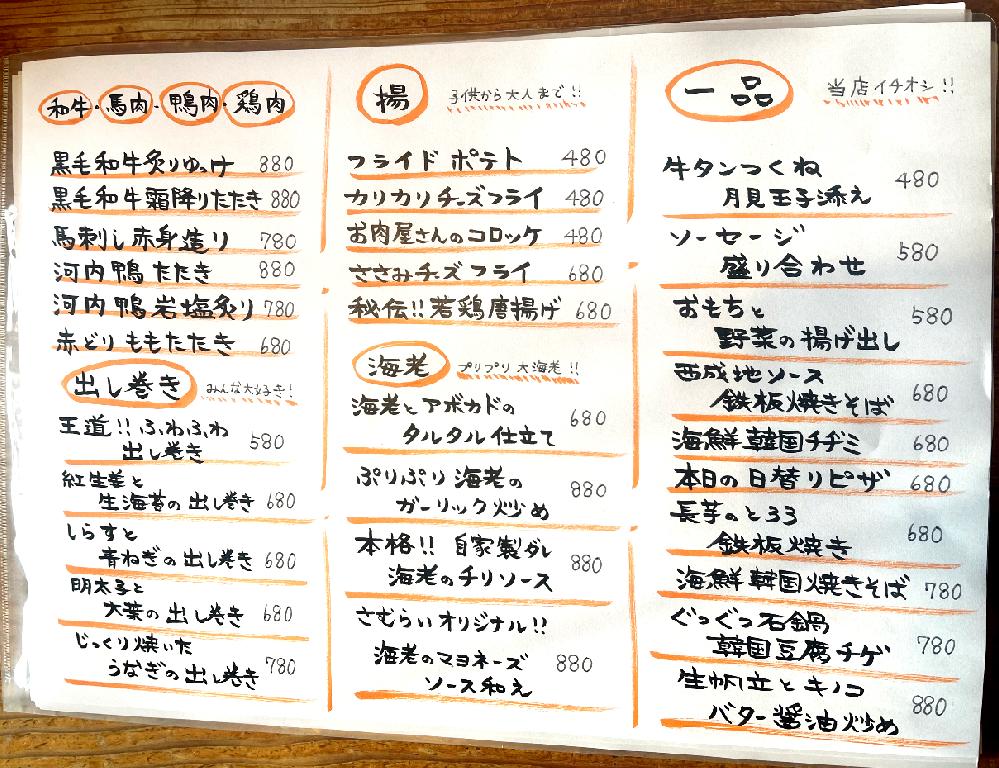 和牛・馬肉・鴨肉・鶏肉
黒毛和牛炙りゆっけ 880
黒毛和牛霜降りたたき 880
馬刺し赤身造り 780
河内鴨たたき 880
河内鴨岩塩炙り 780
赤どりももたたき 680
出し巻き みんな大好き!
王道!!ふわふわ
出し巻き 580
紅生姜と
生海苔の出し巻き 680
しらすと
青ねぎの出し巻き 680
明太子と
大葉の出し巻き 680
じっくり焼いた
うなぎの出し巻き 780
揚 子供から大人まで!!
フライドポテト 480
カリカリチーズフライ 480
お肉屋さんのコロッケ 480
ささみチーズフライ 680
秘伝!!若鶏唐揚げ 680
海老 プリプリ大海老!!
海老とアボカドの
タルタル仕立て 680
ぷりぷり海老の
ガーリック炒め 880
本格!!自家製ダレ
海老のチリソース 880
さむらいオリジナル!!
海老のマヨネーズ
ソース和え 880
一品 当店イチオシ!!
牛タンつくね
月見玉子添え 480
ソーセージ
盛り合わせ 580
おもちと
野菜の揚げ出し 580
西成地ソース
鉄板焼きそば 680
海鮮韓国チヂミ 680
本日の日替りピザ 680
長芋のとろろ
鉄板焼き 680
海鮮韓国焼きそば 780
ぐつぐつ石鍋
韓国豆腐チゲ 780
生帆立とキノコ
バター醤油炒め 880